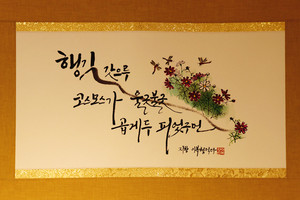 행길 갓으루
코스모스가 울긋불긋
곱게두 피었구먼